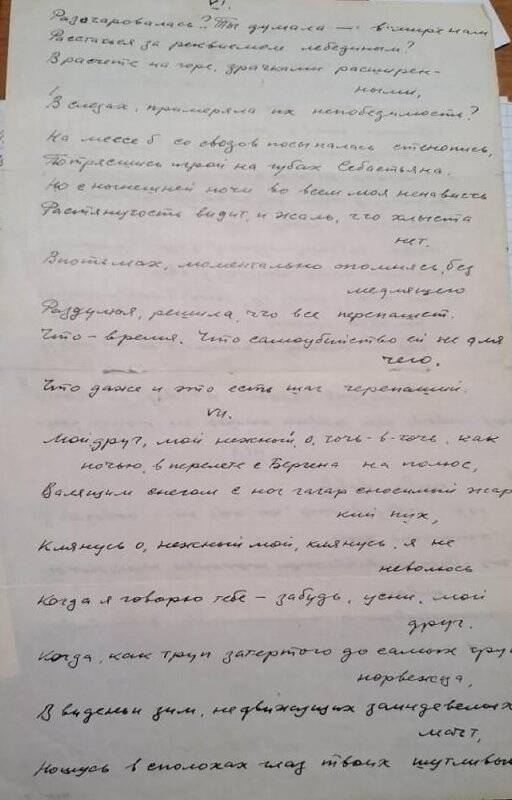 VI.
Разочаровалась? Ты думала — в мире нам
Расстаться за реквиемом лебединым?
В расчете на горе, зрачками расширен-
ными,
В слезах, примеряла их непобедимость?
На мессе б со сводов посыпалась стенопись,
Потрясшись игрой на губах Себастьяна.
Но с нынешней ночи во всем моя ненависть
Растянутость видит, и жаль, что хлыста
нет.
Впотьмах, моментально опомнясь, без
медлящего
Раздумья, решила, что все перепашет.
Что – время. Что самоубийство ей не для
чего.
Что даже и это есть шаг черепаший.
VII.
Мой друг, мой нежный, о, точь-в-точь, как
ночью, в перелете с Бергена на полюс,
Валящим снегом с ног гагар сносимый жар
кий пух,
Клянусь о, нежный мой, клянусь, я не
неволюсь
Когда я говорю тебе – забудь, усни, мой
друг.
Когда, как труп затертого до самых труб
норвежца,
В виденьи зим, не движущих заиндевелых
мачт,
Ношусь в сполохах глаз твоих шутливым